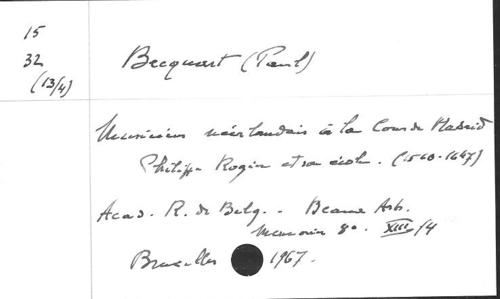 15
32
(13/4)
Becquart (Paul)
Musiciens néerlandais à la Cour de Madrid
Philippe Rogier et son école. (1560-1647)
Acad. R. de Belg. - Beaux Arts.
Memoires 8º. XIII/4
Bruxelles 1967.